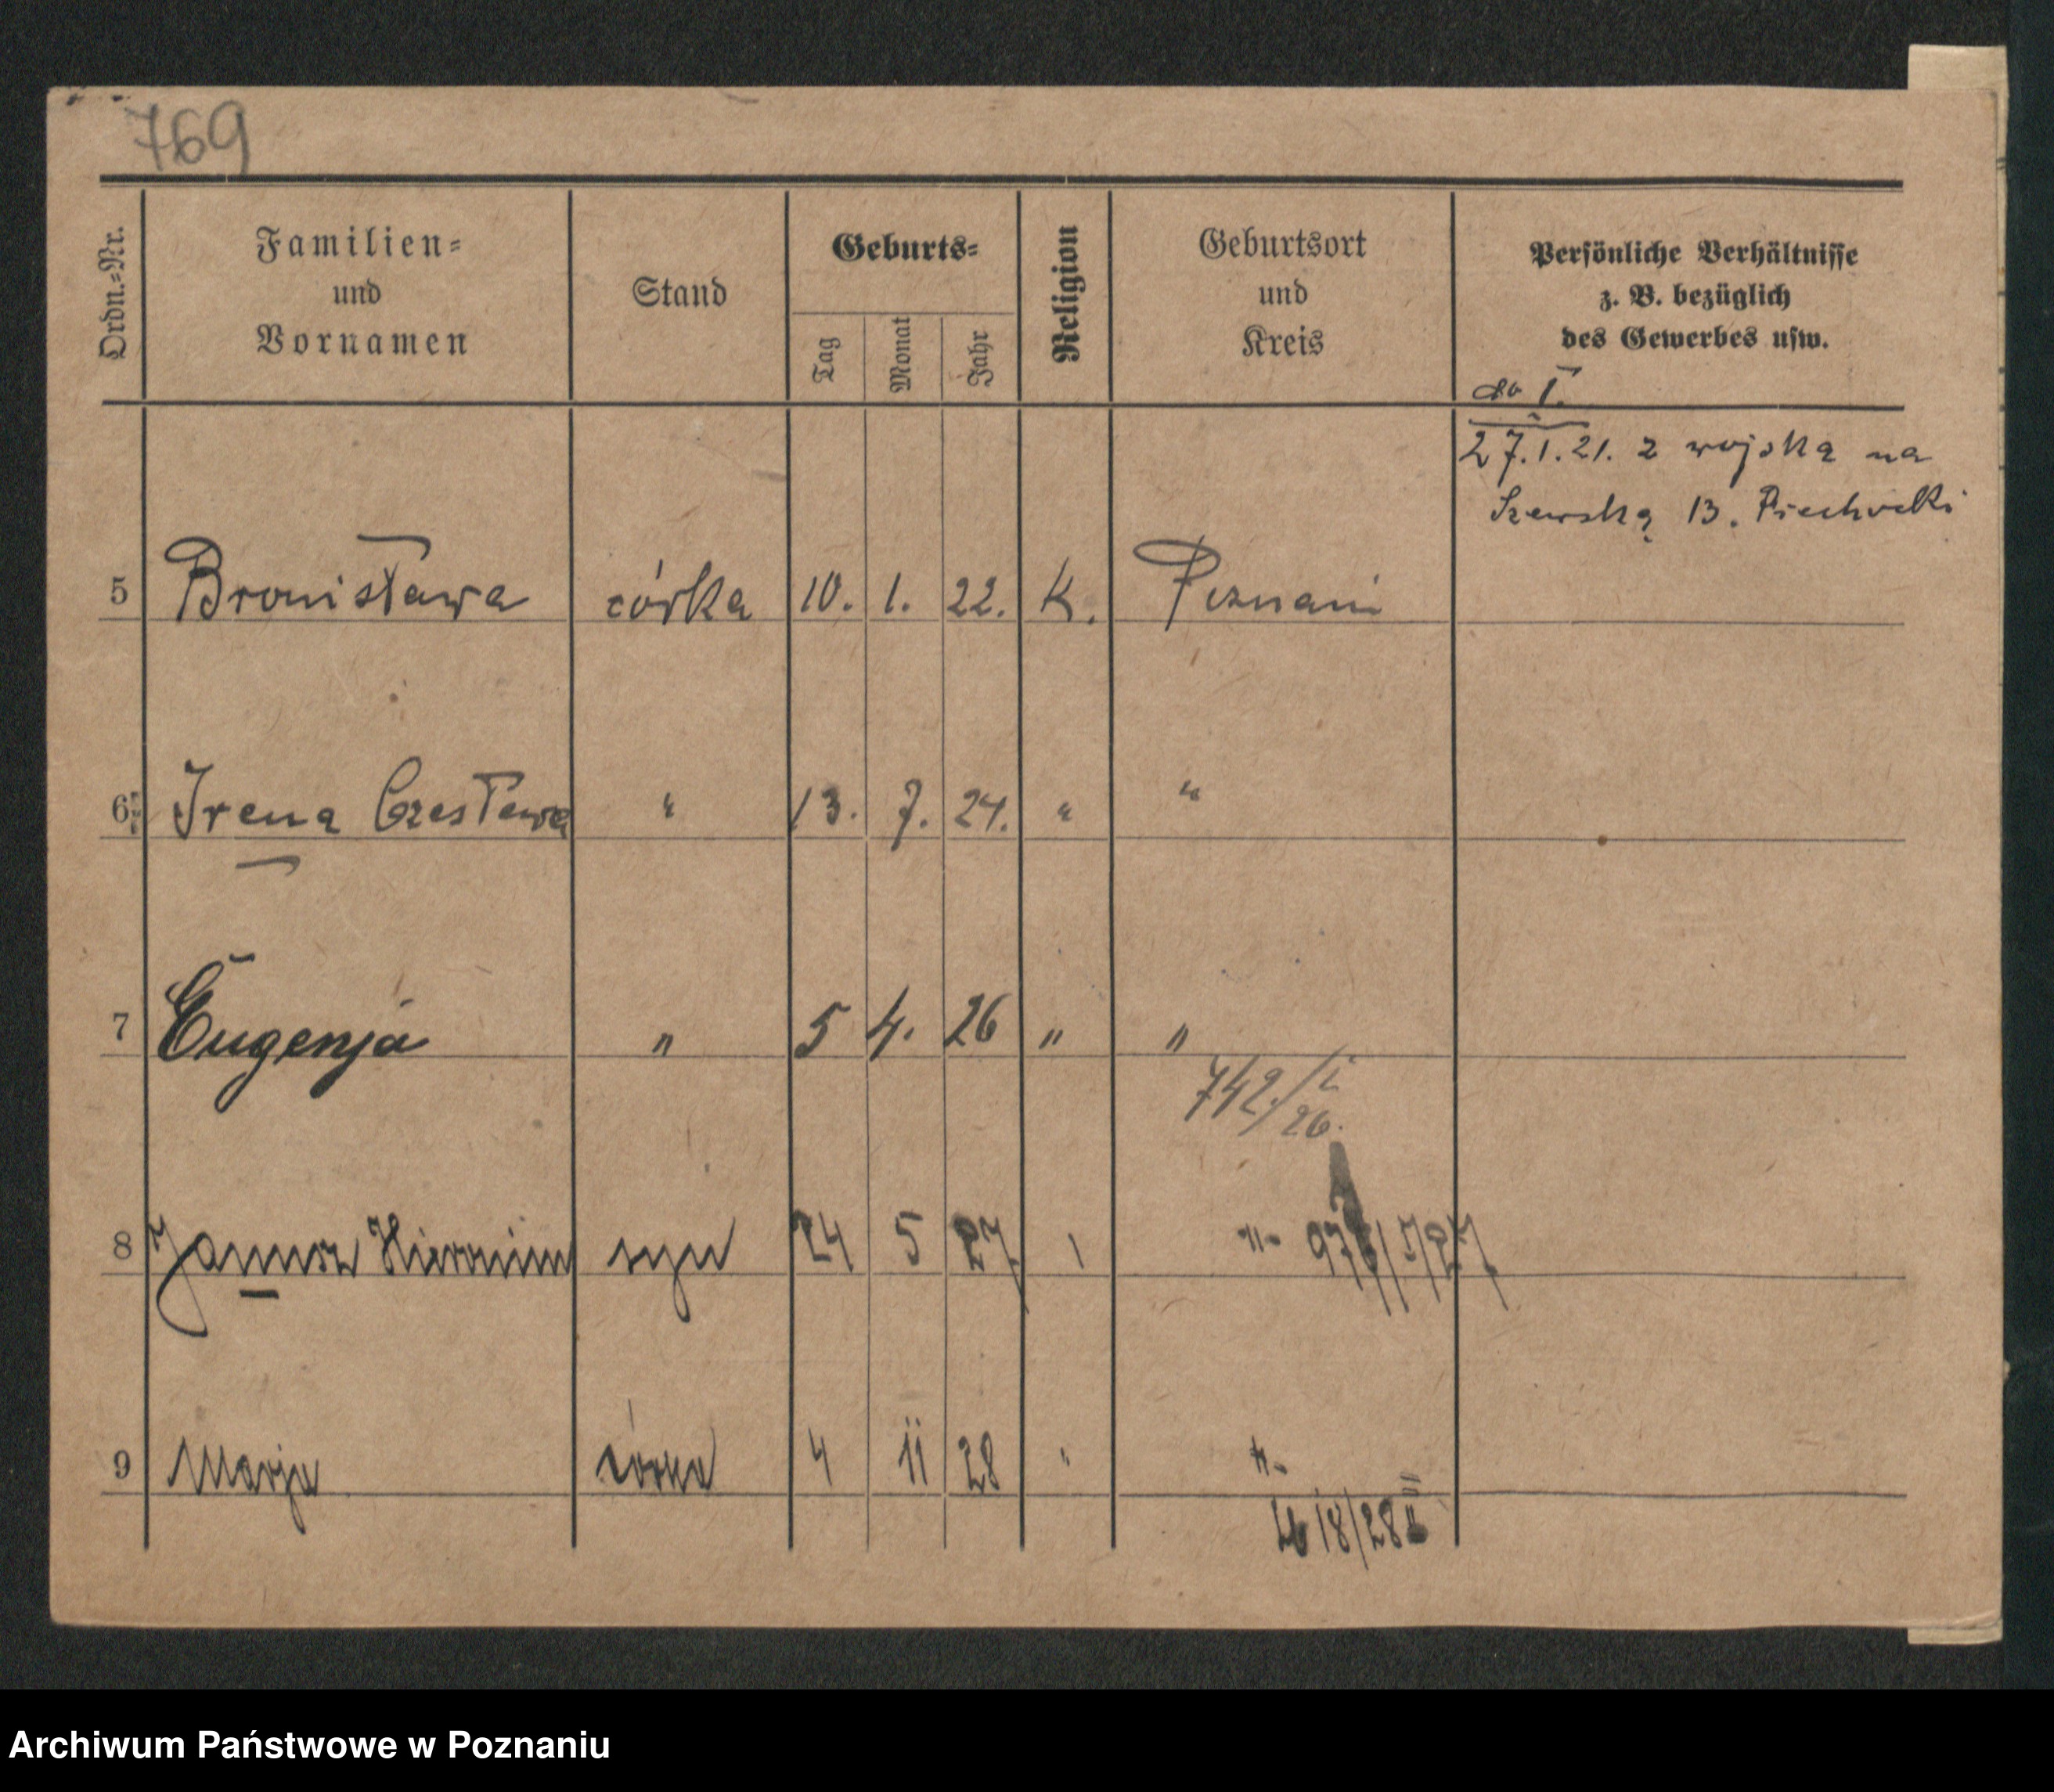 769
Ordn.-Nr.
Familien-
und
Vornamen
Stand
Geburts-
Tag
Monat
Jahr
Religion
Geburtsort
und
Kreis
Persönliche Verhältnisse
z. B. bezüglich
des Gewerbes usw.
do I.
27.1.21. z wojska na
Szewską 13. Piechocki
5 Bronisława córka 10. 1. 22. K. Poznań
6 Irena Czesława " 13. 7. 24. " "
7 Eugenja " 5 4. 26 " "
742/I 26.
8 Janusz Hieronim syn 24 5 27 "
9 Marja córka 4 11 28 " "-
Archiwum Państwowe w Poznaniu